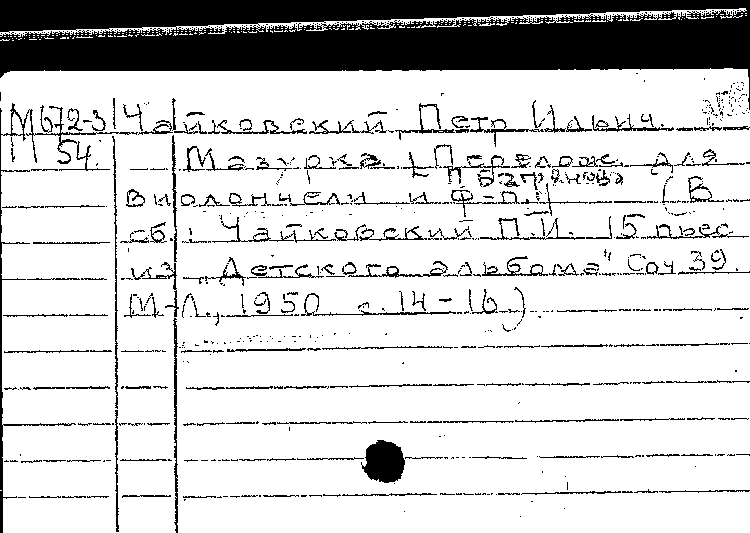 М672-3 Чайковский, Петр Ильич.
М 54. Мазурка [Перелож. для
П. Багрянова
виолончели и ф-п.] (В
сб.: Чайковский П.И. 15 пьес
из „Детского альбома" Соч 39.
М-Л., 1950 с. 14-16.)